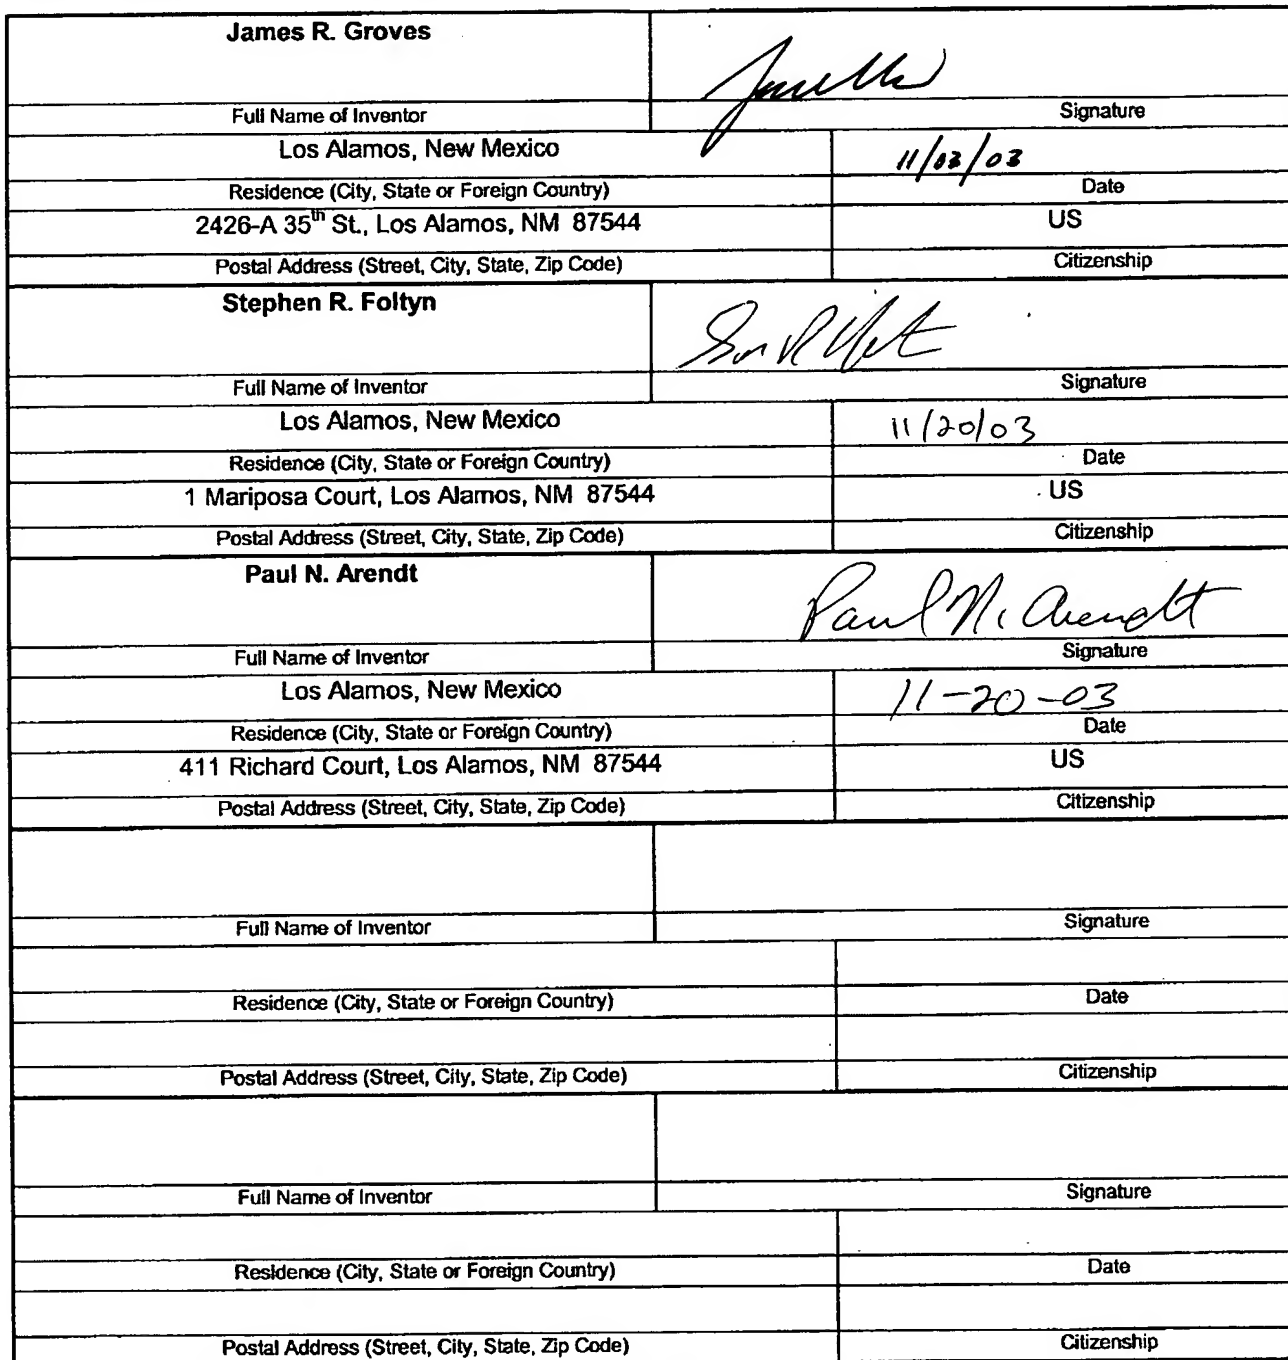 James R. Groves
Full Name of Inventor Signature
Los Alamos, New Mexico 11/03/03
Residence (City, State or Foreign Country) Date
2426-A 35th St., Los Alamos, NM 87544 US
Postal Address (Street, City, State, Zip Code) Citizenship
Stephen R. Foltyn
Full Name of Inventor Signature
Los Alamos, New Mexico 11/20/03
Residence (City, State or Foreign Country) Date
1 Mariposa Court, Los Alamos, NM 87544 US
Postal Address (Street, City, State, Zip Code) Citizenship
Paul N. Arendt Paul N. Arendt
Full Name of Inventor Signature
Los Alamos, New Mexico 11-20-03
Residence (City, State or Foreign Country) Date
411 Richard Court, Los Alamos, NM 87544 US
Postal Address (Street, City, State, Zip Code) Citizenship
Full Name of Inventor Signature
Residence (City, State or Foreign Country) Date
Postal Address (Street, City, State, Zip Code) Citizenship
Full Name of Inventor Signature
Residence (City, State or Foreign Country) Date
Postal Address (Street, City, State, Zip Code) Citizenship